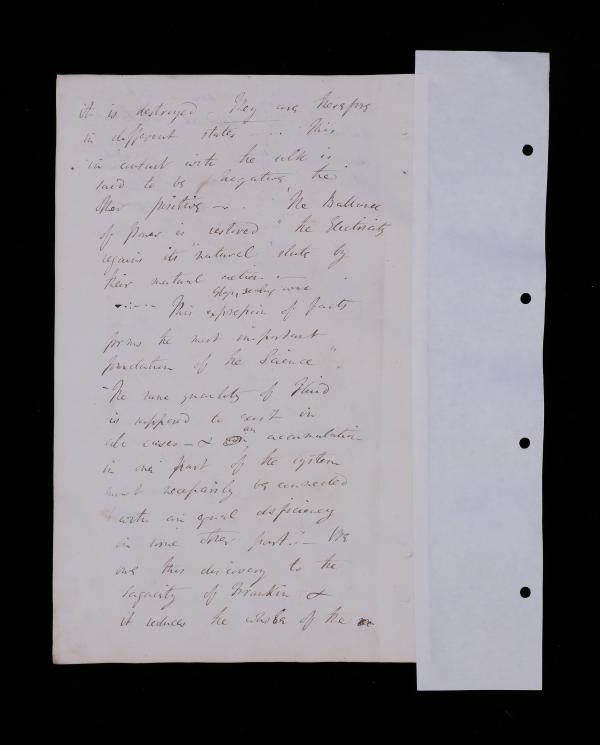 it is destroyed - They are therefore
in different states - . . This
in contact with the silk is
said to be negative the
other positive - . . The Ballance
of power is restored " the Electricity
regains its "natural" state by
their mutual action . -
Glass, sealing wax
This expression of facts
forms the most important
foundation of the Science".
- The same quantity of Fluid
is supposed to exist in
all cases - & an accumulation
in one part of the system
must necessarily be connected
with an equal deficiency
in some other part: - We
owe this discovery to the
sagacity of Franklin &
it reduces the whole of the